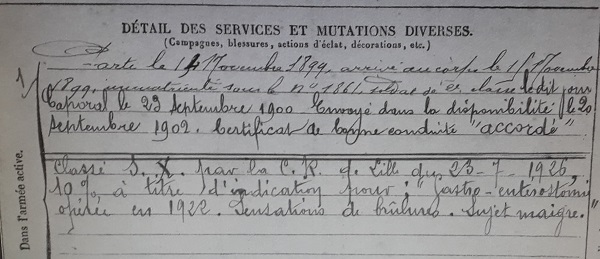 DÉTAIL DES SERVICES ET MUTATIONS DIVERSES.
(Campagnes, blessures, actions d'éclat, décorations, etc.)
Parti le 14 Novembre 1899, arrivé au corps le 15 Novembre
1899, immatriculé sous le N° 1861, soldat de 2e classe le dit jour
Caporal le 23 Septembre 1900 Envoyé dans la disponibilité le 20
Septembre 1902. Certificat de bonne conduite "accordé"
Classé S. X. par la C. R. de Lille du 23-7-1926,
10% à titre d'indication pour: "gastro-enterostomie
opérée en 1922. Sensations de brûlures. Sujet maigre."
Dans l'armée active.